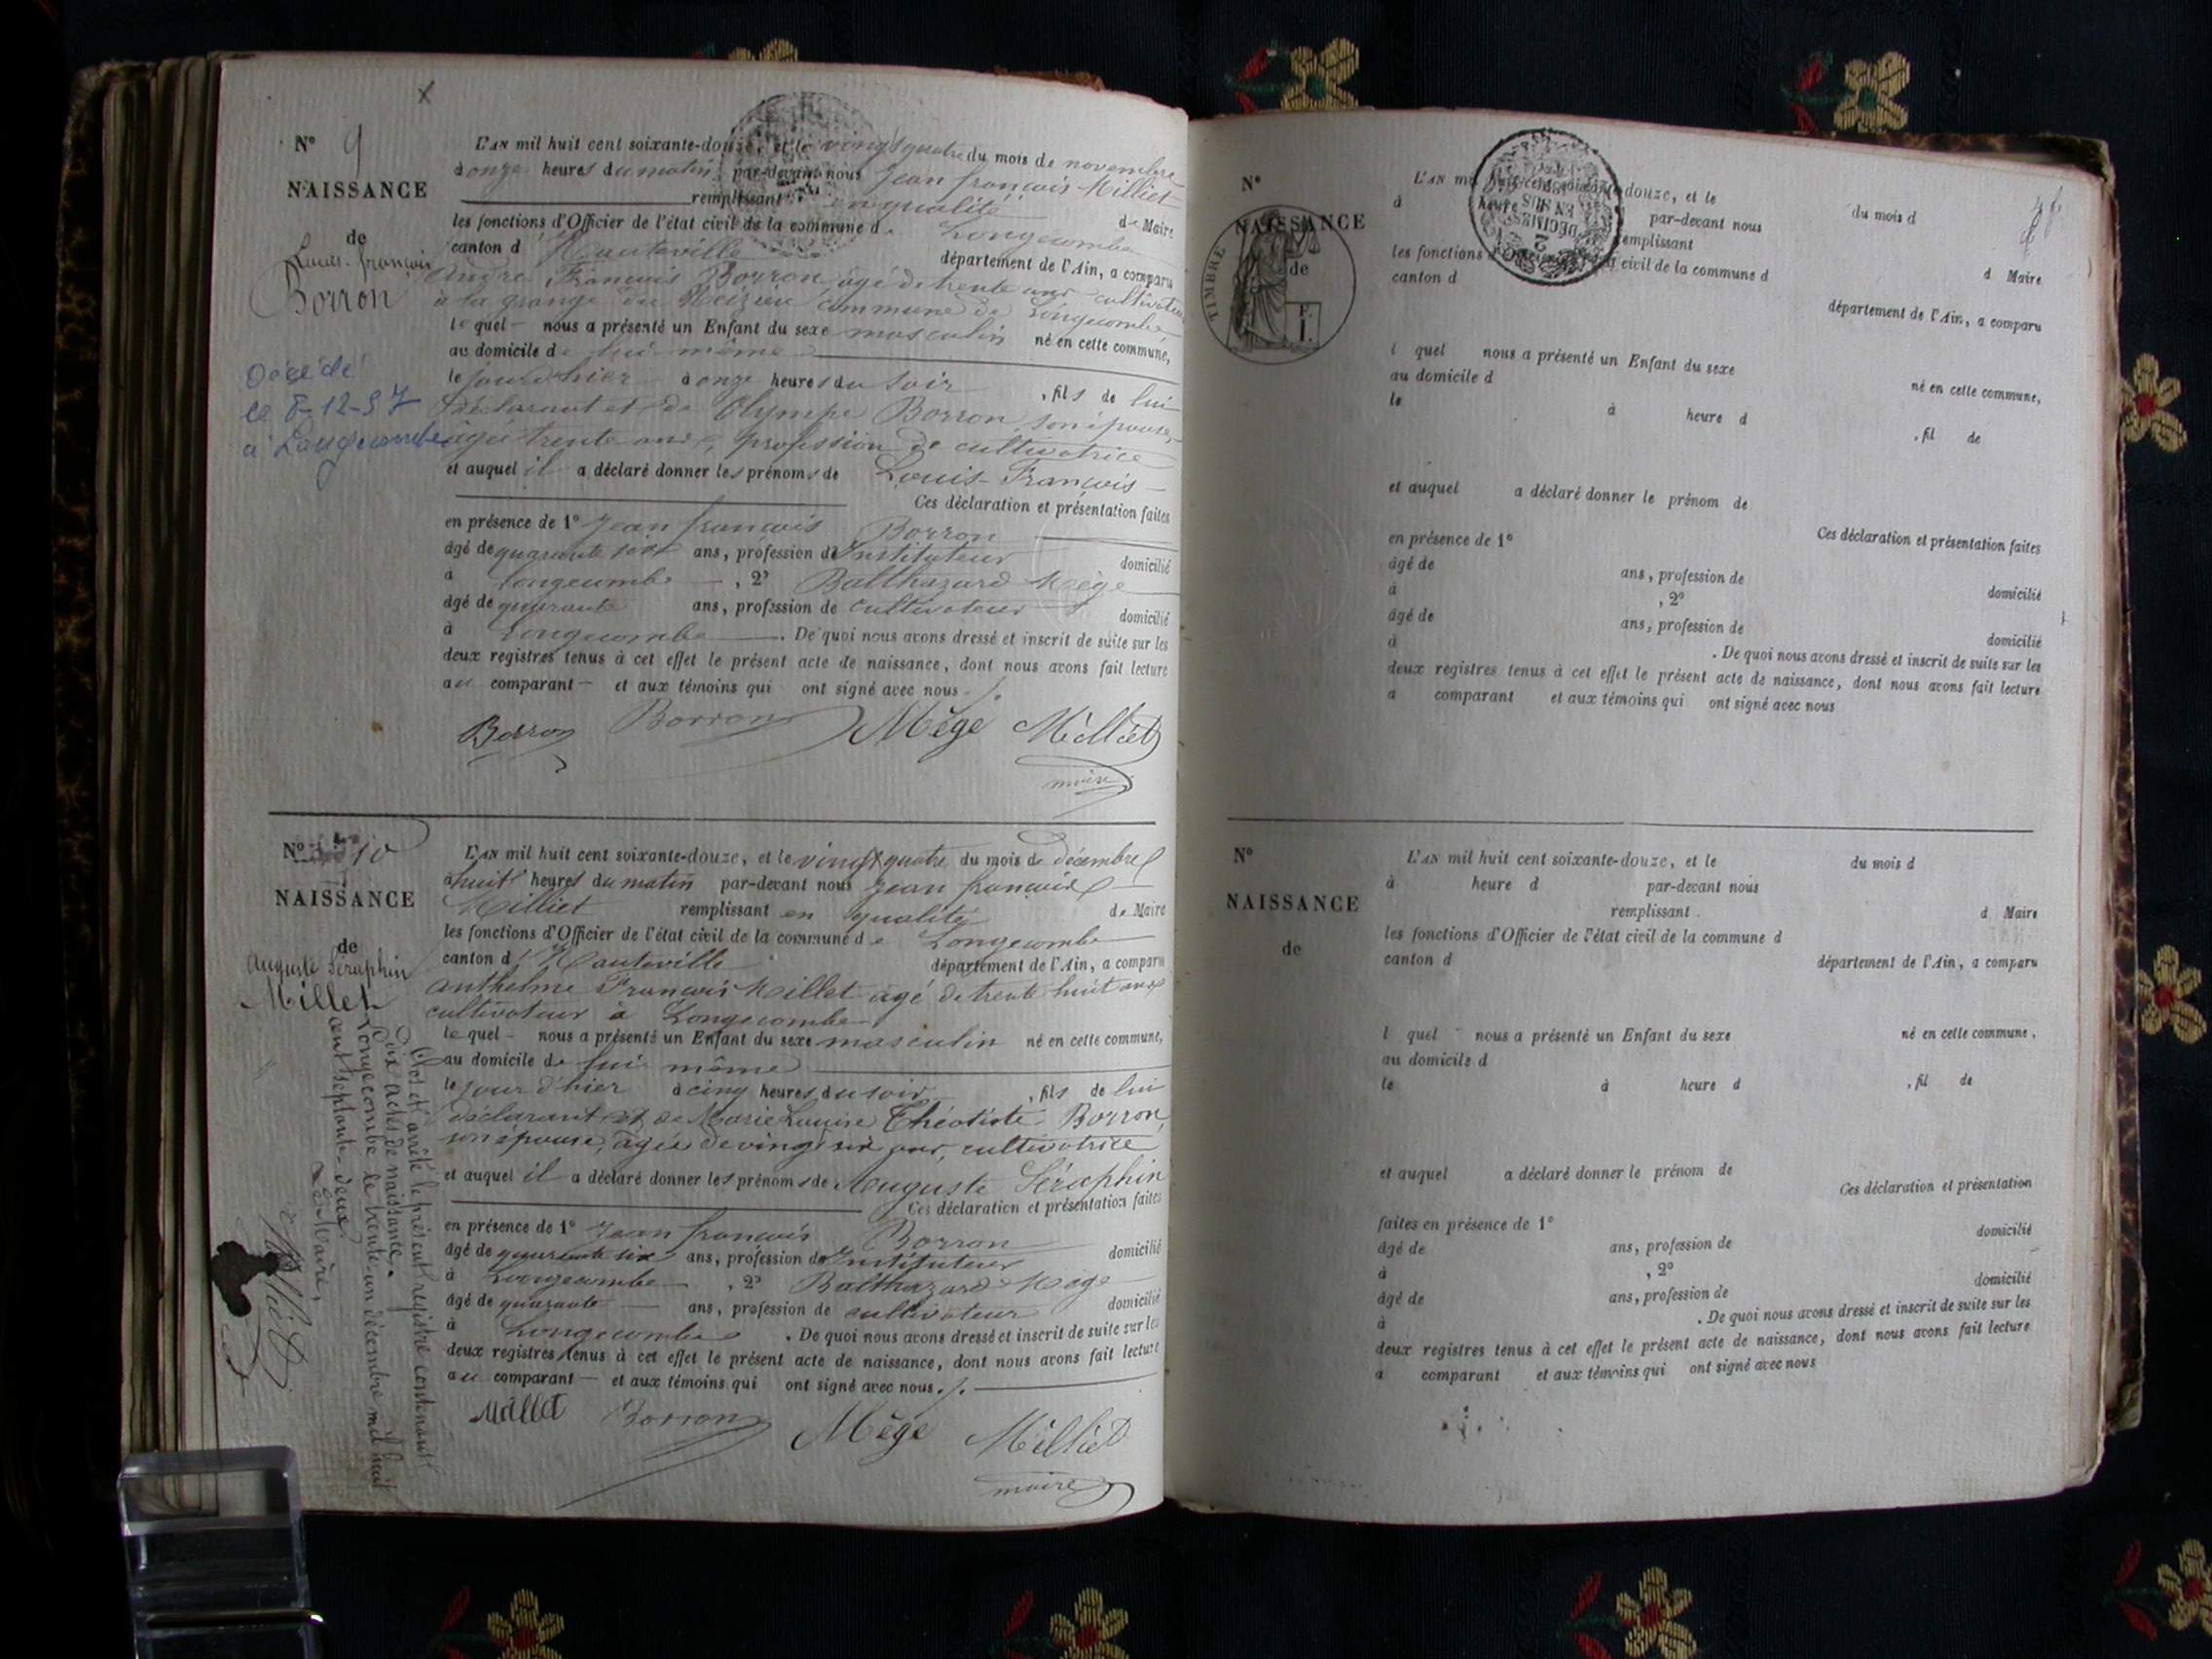 N° 9
NAISSANCE
de
Louis-françois
Borron
Décédé
le 8-12-57
à Longecombe
L'AN mil huit cent soixante-douze, et le vingt quatre du mois de novembre
à onze heures du matin, par-devant nous Jean françois Milliet
remplissant en qualité de Maire
les fonctions d'Officier de l'état civil de la commune de Longecombe
canton d'Hauteville département de l'Ain, a comparu
André François Borron âgé de trente ans cultivateur
à la grange du commune de Longecombe
lequel nous a présenté un Enfant du sexe masculin né en cette commune,
au domicile de lui même
le jour d'hier à onze heures du soir, fils de lui
déclarant et de Olympe Borron, son épouse,
âgée trente ans, profession de cultivatrice
et auquel il a déclaré donner les prénoms de Louis-François
Ces déclaration et présentation faites
en présence de 1° Jean françois Borron
âgé de quarante six ans, profession d'Instituteur domicilié
à Longecombe, 2° Balthazard Mège
âgé de quarante ans, profession de cultivateur domicilié
à Longecombe. De quoi nous avons dressé et inscrit de suite sur les
deux registres tenus à cet effet le présent acte de naissance, dont nous avons fait lecture
au comparant et aux témoins qui ont signé avec nous.
Borron Borron Mège Milliet
maire
N° 10
NAISSANCE
de
Auguste Séraphin
Millet
L'AN mil huit cent soixante-douze, et le vingt quatre du mois de décembre
à huit heures du matin par-devant nous Jean françois
Milliet remplissant en qualité de Maire
les fonctions d'Officier de l'état civil de la commune de Longecombe
canton d'Hauteville département de l'Ain, a comparu
Anthelme François Millet âgé de trente huit ans
cultivateur à Longecombe
lequel nous a présenté un Enfant du sexe masculin né en cette commune,
au domicile de lui même
le jour d'hier à cinq heures du soir, fils de lui
déclarant et de Marie Louise Théotiste Borron,
son épouse, âgée de vingt six ans, cultivatrice
et auquel il a déclaré donner les prénoms de Auguste Séraphin
Ces déclaration et présentation faites
en présence de 1° Jean françois Borron
âgé de quarante six ans, profession d'Instituteur domicilié
à Longecombe, 2° Balthazard Mège
âgé de quarante ans, profession de cultivateur domicilié
à Longecombe. De quoi nous avons dressé et inscrit de suite sur les
deux registres tenus à cet effet le présent acte de naissance, dont nous avons fait lecture
au comparant et aux témoins qui ont signé avec nous.
Millet Borron Mège Milliet
maire
Clos et arrêté le présent registre contenant
dix actes de naissance.
Longecombe le trente-un décembre mil huit
cent septante-deux
Le Maire,
Milliet
N°
NAISSANCE
de
TIMBRE
F.
1.
2
DÉCIMES
EN SUS
L'AN mil huit cent soixante-douze, et le du mois d
à heure d par-devant nous
remplissant d Maire
les fonctions d'Officier de l'état civil de la commune d
canton d département de l'Ain, a comparu
l quel nous a présenté un Enfant du sexe né en cette commune,
au domicile d
le à heure d , fil de
et auquel a déclaré donner le prénom de
Ces déclaration et présentation faites
en présence de 1°
âgé de ans, profession de domicilié
à , 2°
âgé de ans, profession de domicilié
à . De quoi nous avons dressé et inscrit de suite sur les
deux registres tenus à cet effet le présent acte de naissance, dont nous avons fait lecture
a comparant et aux témoins qui ont signé avec nous
N°
NAISSANCE
de
L'AN mil huit cent soixante-douze, et le du mois d
à heure d par-devant nous
remplissant d Maire
les fonctions d'Officier de l'état civil de la commune d
canton d département de l'Ain, a comparu
l quel nous a présenté un Enfant du sexe né en cette commune,
au domicile d
le à heure d , fil de
et auquel a déclaré donner le prénom de
Ces déclaration et présentation
faites en présence de 1° domicilié
âgé de ans, profession de
à , 2° domicilié
âgé de ans, profession de
à . De quoi nous avons dressé et inscrit de suite sur les
deux registres tenus à cet effet le présent acte de naissance, dont nous avons fait lecture
a comparant et aux témoins qui ont signé avec nous